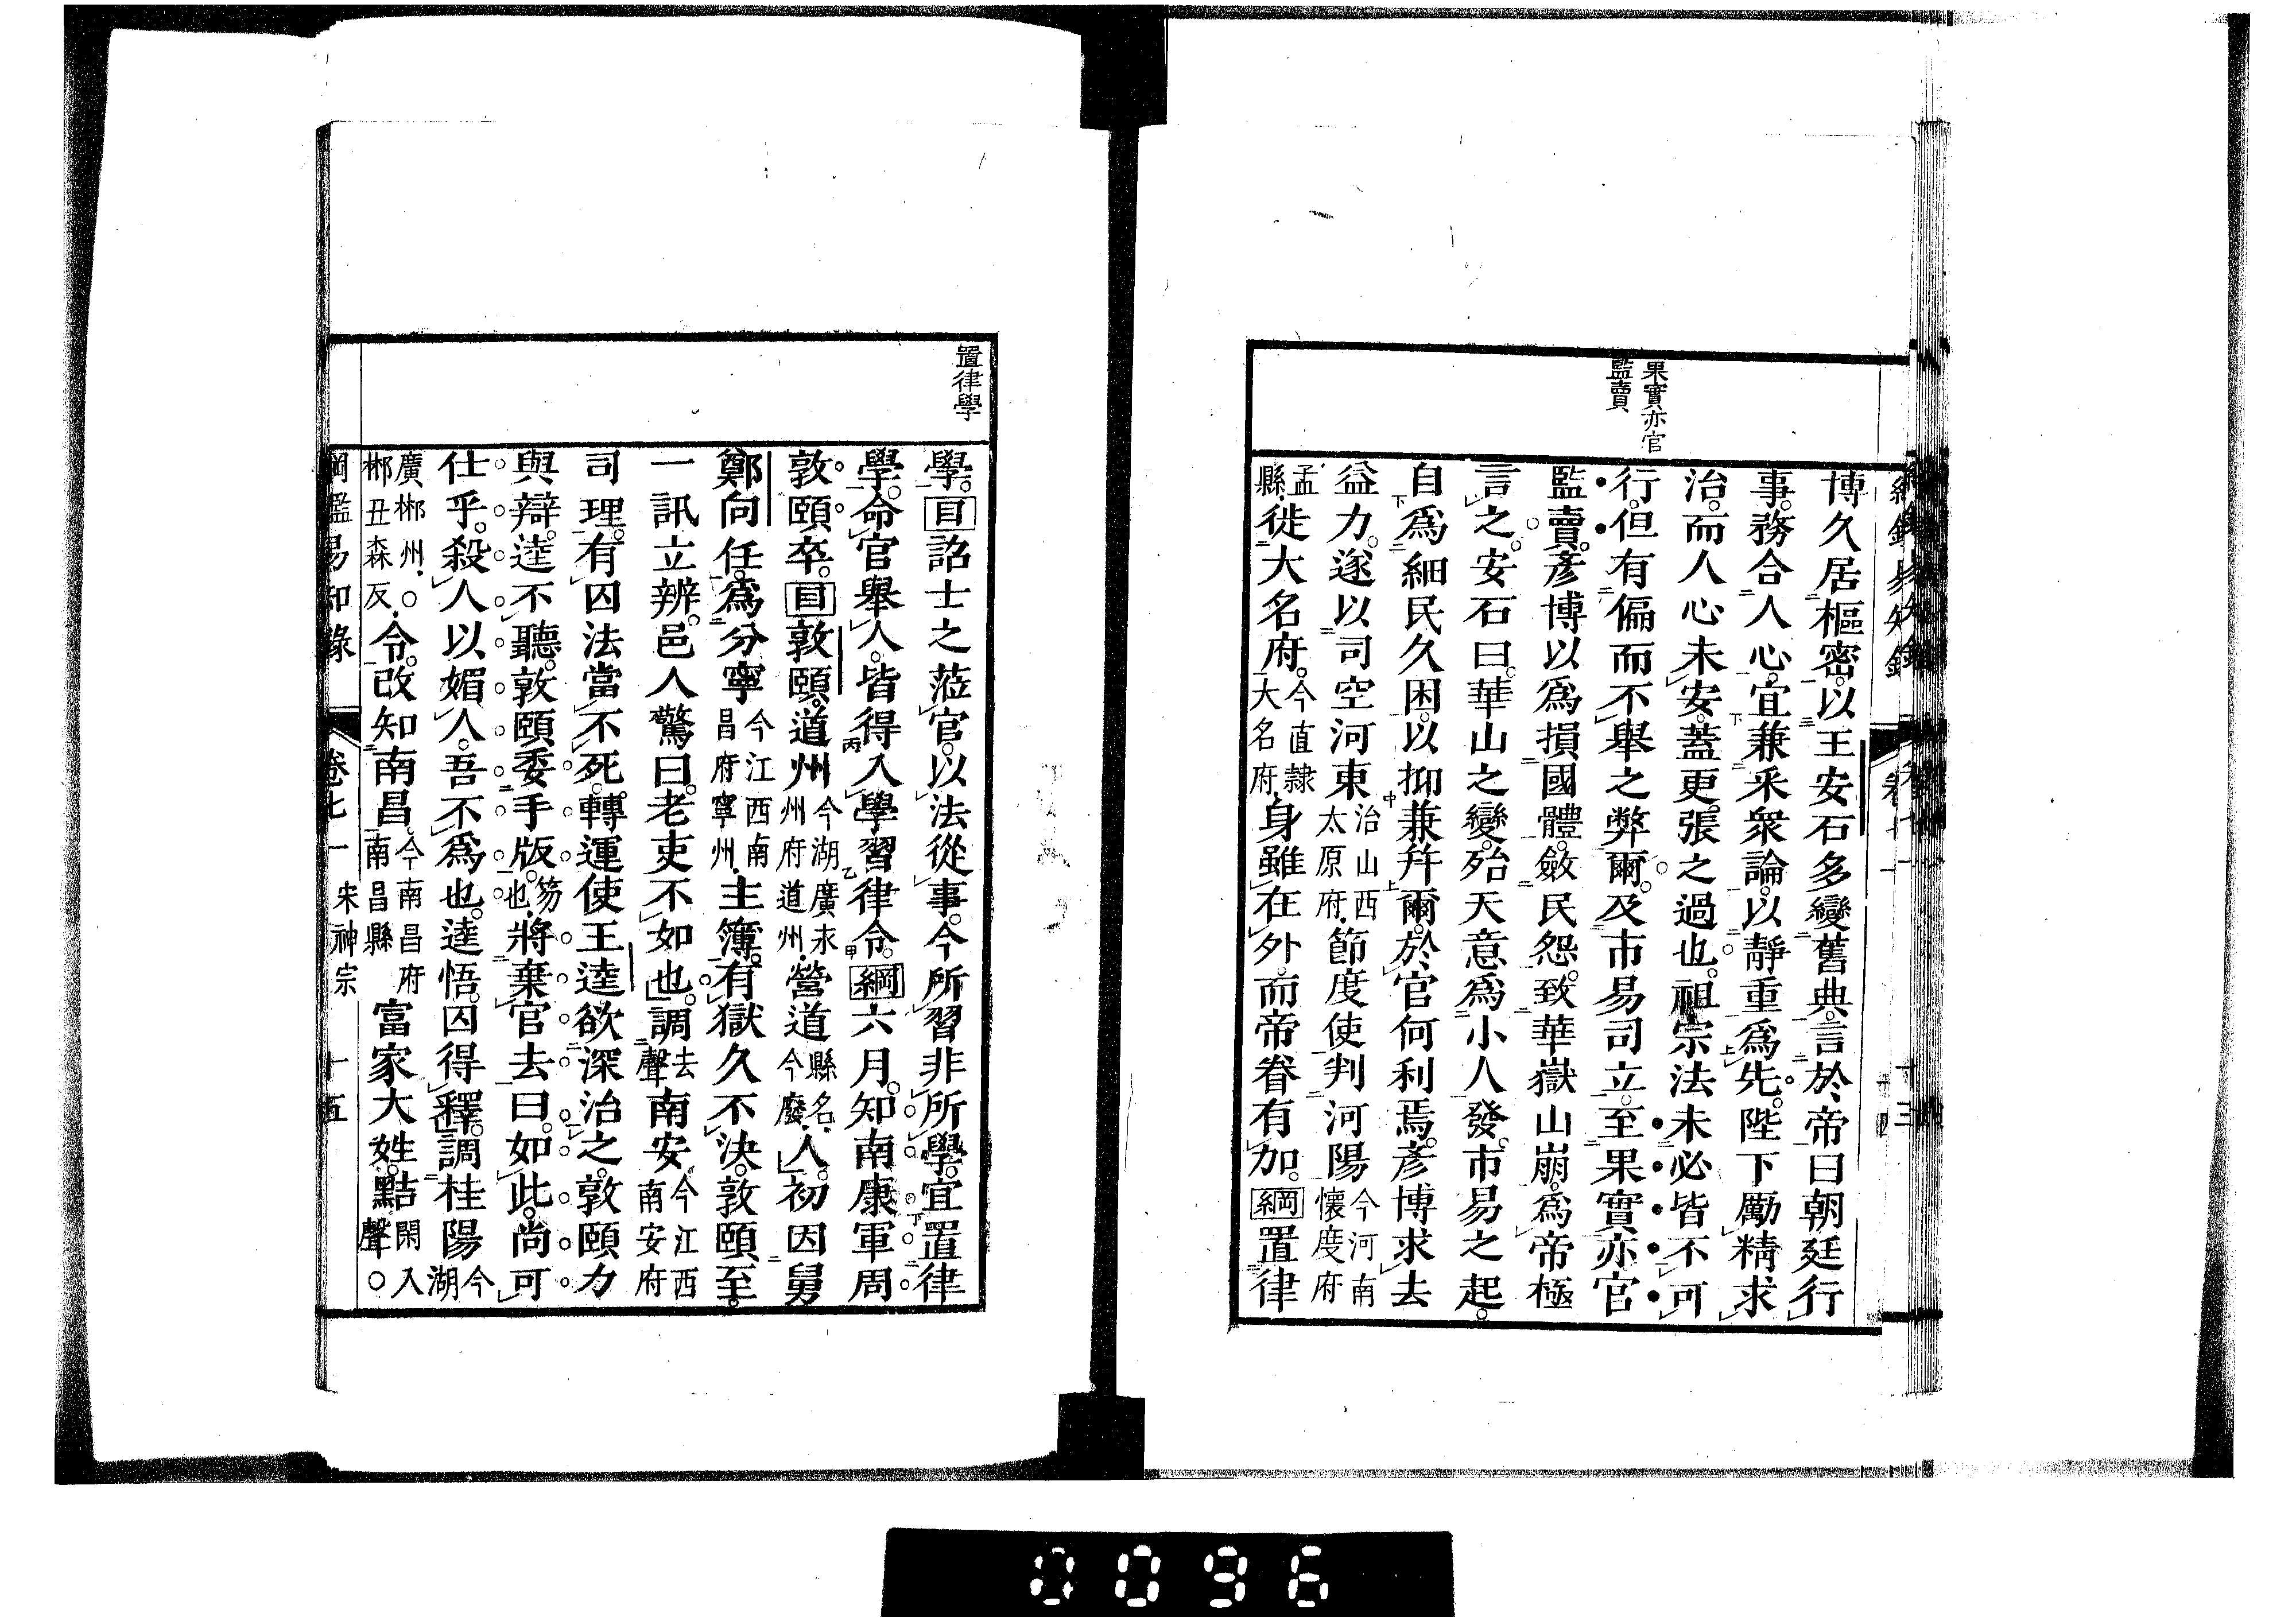 果實亦官
監賣
博久居樞密。以王安石多變舊典。言於帝曰朝廷行
事。務合人心。宜兼釆衆論。以靜重爲先。陛下勵精求
治。而人心未安。蓋更張之過也。祖宗法未必皆不可
行。但有偏而不舉之弊爾。及市易司立。至果實亦官
監賣。彥博以爲損國體。斂民怨。致華嶽山崩。爲帝極
言之。安石曰。華山之變。殆天意爲小人發。市易之起。
自爲細民久困。以抑兼幷爾。於官何利焉。彥博求去
益力。遂以司空河東治山西太原府節度使判河陽今河南懷慶府
孟縣徙大名府。今直隸大名府身雖在外。而帝眷有加。綱置律
置律學
學。目詔士之蒞官。以法從事。今所習非所學。宜置律
學。命官舉人。皆得入學習律令。綱六月。知南康軍周
敦頤卒。目敦頤。道州今湖廣永州府道州營道縣名今廢人。初因舅
鄭向任。爲分寧今江西南昌府寧州主簿。有獄久不決。敦頤至。
一訊立辨。邑人驚曰。老吏不如也。調去聲南安今江西南安府
司理。有囚法當不死。轉運使王逵欲深治之。敦頤力
與辯。逵不聽。敦頤委手版。笏也將棄官去。曰。如此。尚可
仕乎。殺人以媚人。吾不爲也。逵悟。囚得釋。調桂陽今湖
廣郴州○郴丑森反令。改知南昌。今南昌府南昌縣富家大姓。黠閑入聲○
綱鑑易知錄 卷七一 宋神宗 十五